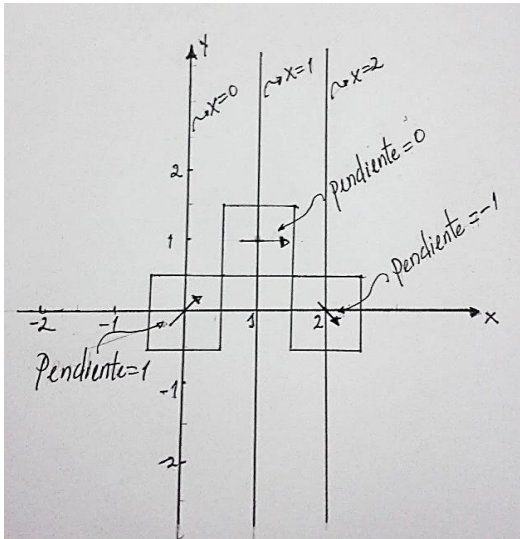 Y
x=0
x=1
x=2
2
Pendiente=0
1
Pendiente=-1
-2
-1
1
2
x
Pendiente=1
-1
-2